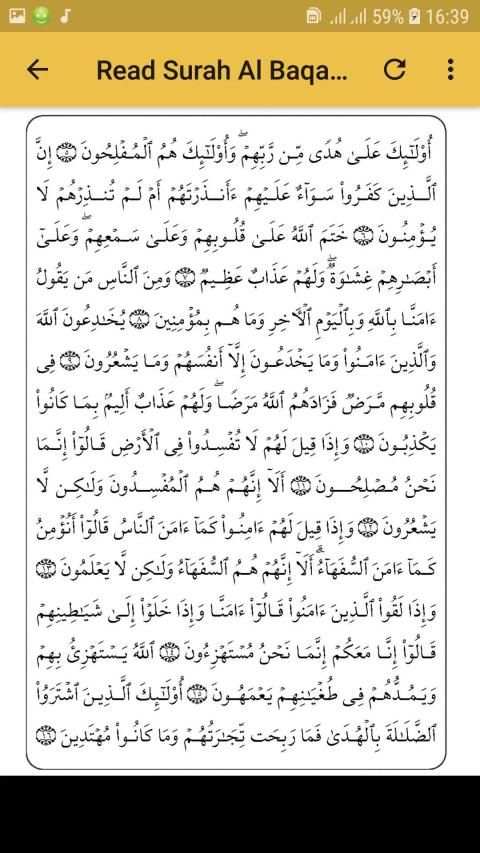 59% 16:39
Read Surah Al Baqa...
أُوْلَٰٓئِكَ عَلَىٰ هُدٗى مِّن رَّبِّهِمۡۖ وَأُوْلَٰٓئِكَ هُمُ ٱلۡمُفۡلِحُونَ ۝٥ إِنَّ
ٱلَّذِينَ كَفَرُواْ سَوَآءٌ عَلَيۡهِمۡ ءَأَنذَرۡتَهُمۡ أَمۡ لَمۡ تُنذِرۡهُمۡ لَا
يُؤۡمِنُونَ ۝٦ خَتَمَ ٱللَّهُ عَلَىٰ قُلُوبِهِمۡ وَعَلَىٰ سَمۡعِهِمۡۖ وَعَلَىٰٓ
أَبۡصَٰرِهِمۡ غِشَٰوَةٞۖ وَلَهُمۡ عَذَابٌ عَظِيمٞ ۝٧ وَمِنَ ٱلنَّاسِ مَن يَقُولُ
ءَامَنَّا بِٱللَّهِ وَبِٱلۡيَوۡمِ ٱلۡأٓخِرِ وَمَا هُم بِمُؤۡمِنِينَ ۝٨ يُخَٰدِعُونَ ٱللَّهَ
وَٱلَّذِينَ ءَامَنُواْ وَمَا يَخۡدَعُونَ إِلَّآ أَنفُسَهُمۡ وَمَا يَشۡعُرُونَ ۝٩ فِي
قُلُوبِهِم مَّرَضٞ فَزَادَهُمُ ٱللَّهُ مَرَضٗاۖ وَلَهُمۡ عَذَابٌ أَلِيمُۢ بِمَا كَانُواْ
يَكۡذِبُونَ ۝١٠ وَإِذَا قِيلَ لَهُمۡ لَا تُفۡسِدُواْ فِي ٱلۡأَرۡضِ قَالُوٓاْ إِنَّمَا
نَحۡنُ مُصۡلِحُونَ ۝١١ أَلَآ إِنَّهُمۡ هُمُ ٱلۡمُفۡسِدُونَ وَلَٰكِن لَّا
يَشۡعُرُونَ ۝١٢ وَإِذَا قِيلَ لَهُمۡ ءَامِنُواْ كَمَآ ءَامَنَ ٱلنَّاسُ قَالُوٓاْ أَنُؤۡمِنُ
كَمَآ ءَامَنَ ٱلسُّفَهَآءُۗ أَلَآ إِنَّهُمۡ هُمُ ٱلسُّفَهَآءُ وَلَٰكِن لَّا يَعۡلَمُونَ ۝١٣
وَإِذَا لَقُواْ ٱلَّذِينَ ءَامَنُواْ قَالُوٓاْ ءَامَنَّا وَإِذَا خَلَوۡاْ إِلَىٰ شَيَٰطِينِهِمۡ
قَالُوٓاْ إِنَّا مَعَكُمۡ إِنَّمَا نَحۡنُ مُسۡتَهۡزِءُونَ ۝١٤ ٱللَّهُ يَسۡتَهۡزِئُ بِهِمۡ
وَيَمُدُّهُمۡ فِي طُغۡيَٰنِهِمۡ يَعۡمَهُونَ ۝١٥ أُوْلَٰٓئِكَ ٱلَّذِينَ ٱشۡتَرَوُاْ
ٱلضَّلَٰلَةَ بِٱلۡهُدَىٰ فَمَا رَبِحَت تِّجَٰرَتُهُمۡ وَمَا كَانُواْ مُهۡتَدِينَ ۝١٦